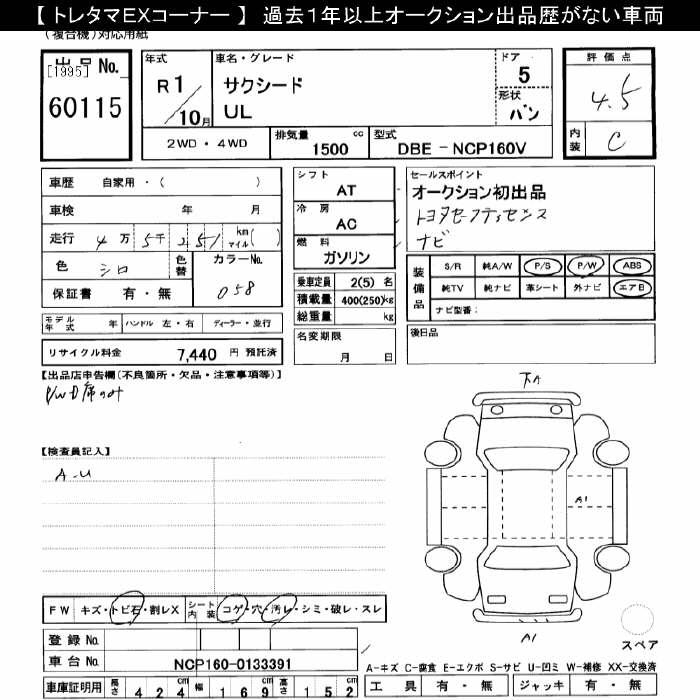 【 トレタマEXコーナー 】 過去１年以上オークション出品歴がない車両
(複合機)対応用紙
出品 No.
[1995]
60115
年式
R 1
10月
車名・グレード
サクシード
UL
ドア
5
形状
バン
評価点
4.5
内装
C
2WD ・ 4WD
排気量
1500 cc
型式
DBE － NCP160V
車歴 自家用 ・ ( )
車検 年 月
走行 4万 5千 251 km マイル ( )
色 シロ
色替
カラーNo.
058
保証書 有 ・ 無
シフト
AT
冷房
AC
燃料
ガソリン
セールスポイント
オークション初出品
トヨタセーフティセンス
ナビ
乗車定員 2(5) 名
積載量 400(250)kg
総重量 kg
装備品
S/R 純A/W P/S P/W ABS
純TV 純ナビ 革シート 外ナビ エアB
ナビ型番：
モデル年式 年 ハンドル 左 ・ 右 ディーラー ・ 並行
リサイクル料金 7,440 円 預託済
名変期限
月 日
後日品
【出品店申告欄(不良箇所・欠品・注意事項等)】
P/W D席のみ
【検査員記入】
A-U
下A
A1
A1
スペア
FW キズ・トビ石・割レX シート内装 コゲ・穴・汚レ・シミ・破レ・スレ
登録 No.
車台 No. NCP160-0133391
車庫証明用 長さ 4 2 4 幅 1 6 9 高さ 1 5 2
A-キズ C-腐食 E-エクボ S-サビ U-凹ミ W-補修 XX-交換済
工具 有 ・ 無 ジャッキ 有 ・ 無